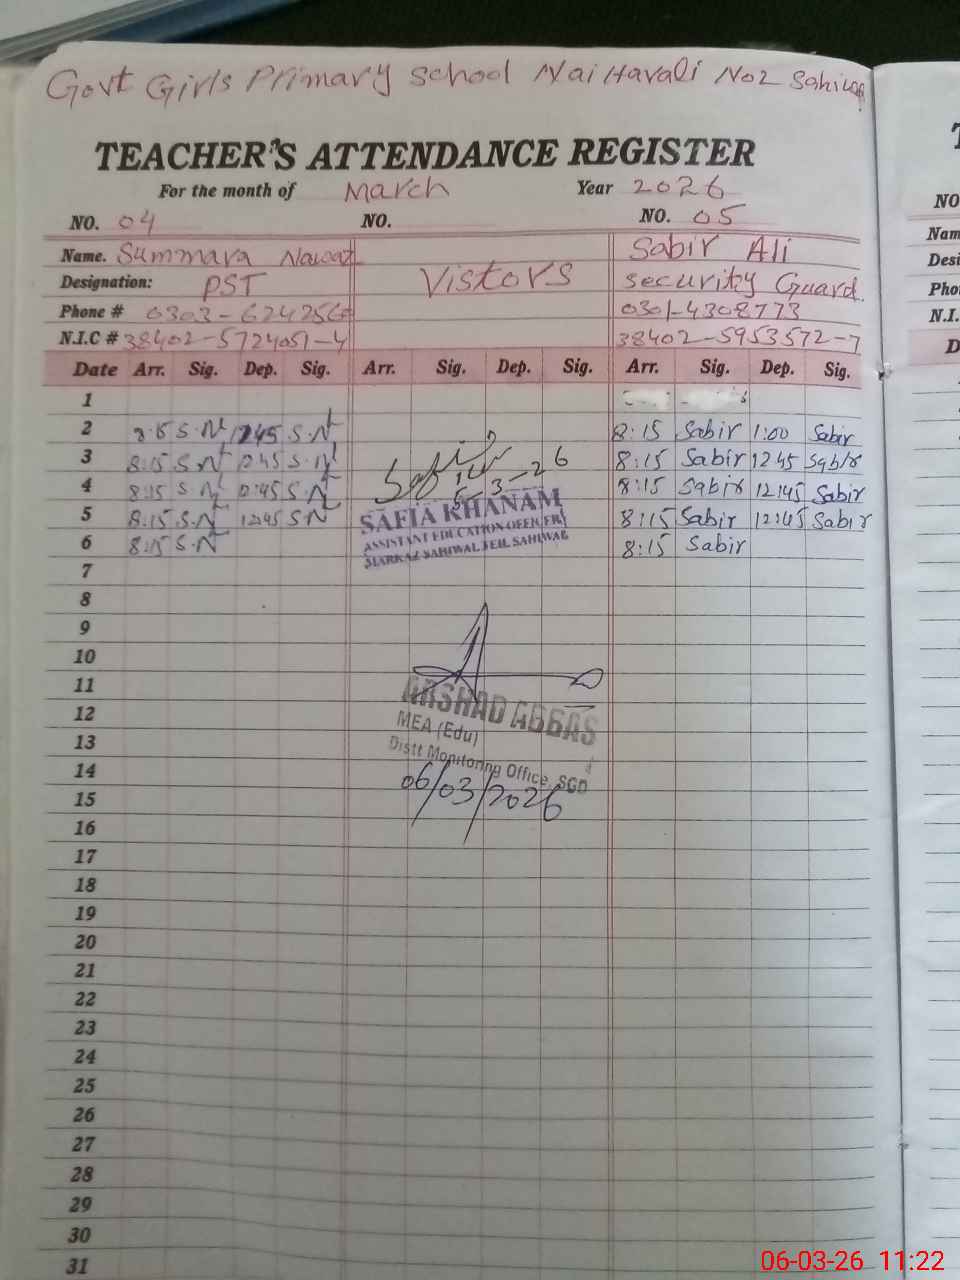 Govt Girls Primary School Nai Havali No2 Sahiwal
TEACHER'S ATTENDANCE REGISTER
For the month of March Year 2026
NO. 04 NO. NO. 05
Name. Summara Nawaz Sabir Ali
Designation: PST Vistors Security Guard.
Phone # 0303-6242560 0301-4308773
N.I.C # 38402-5724051-4 38402-5953572-7
Date Arr. Sig. Dep. Sig. Arr. Sig. Dep. Sig. Arr. Sig. Dep. Sig.
1
2 8:15 S.N 1245 S.N 8:15 Sabir 1:00 Sabir
3 8:15 S.N 1245 S.N 8:15 Sabir 1245 Sabir
4 8:15 S.N 12:45 S.N 8:15 Sabir 12:45 Sabir
5-3-26
SAFIA KHANAM
5 8:15 S.N 12:45 S.N 8:15 Sabir 12:45 Sabir
ASSISTANT EDUCATION OFFICER
6 8:15 S.N 8:15 Sabir
MARKAZ SAHIWAL TEH. SAHIWAL
7
8
9
10
11
ARSHAD ABBAS
12
MEA (Edu)
13
Distt Monitoring Office, SGD
14
06/03/2026
15
16
17
18
19
20
21
22
23
24
25
26
27
28
29
30
31
NO
Nam
Desi
Pho
N.I.
D
06-03-26 11:22